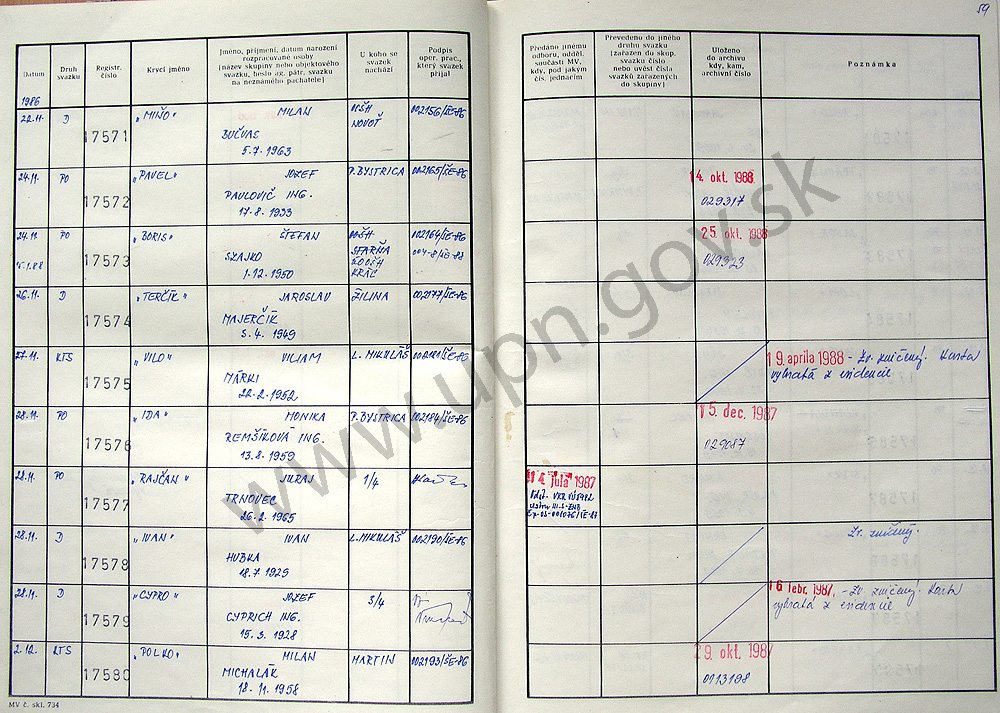 59
Datum
Druh svazku
Registr. číslo
Krycí jméno
Jméno, příjmení, datum narození
rozpracované osoby
[název skupiny nebo objektového
svazku, heslo ag. pátr. svazku
na neznámého pachatele]
U koho se
svazek
nachází
Podpis
oper. prac.,
který svazek
přijal
Předáno jinému
odboru, odděl.
součásti MV,
kdy, pod jakým
čís. jednacím
Převedeno do jiného
druhu svazku
[zařazen do skup.
svazku číslo
nebo uvést čísla
svazků zařazených
do skupiny]
Uloženo
do archivu
kdy, kam,
archivní číslo
Poznámka
1986
22.11. D 17571 "MIŇO" MILAN
BUČVAS
5.7. 1963
NOVOŤ
002156/ŠE-86
24.11. PO 17572 "PAVEL" JOZEF
PAVLOVIČ ING.
17.8. 1933
P. BYSTRICA 002165/ŠE-86
14. okt. 1988
029317
24.11. PO 17573 "BORIS" ŠTEFAN
15.1.88
SLAJKO
1.12. 1950
002164/ŠE-86
25. okt. 1988
029323
26.11. D 17574 "TERČÍK" JAROSLAV
MAJERČÍK
5.4. 1949
ŽILINA 002177/ŠE-86
27.11. KTS 17575 "VILO" VILIAM
MÁRKI
22.2. 1952
L. MIKULÁŠ 002181/ŠE-86
19. apríla 1988 - Zv. zničený. Karta
vybratá z evidencie
28.11. PO 17576 "IDA" MONIKA
REMŠÍKOVÁ ING.
13.8. 1959
P. BYSTRICA 002184/ŠE-86
15. dec. 1987
029087
28.11. PO 17577 "RAJČAN" JURAJ
TRNOVEC
26.2. 1965
1/4
14. júla 1987
28.11. D 17578 "IVAN" IVAN
HUBKA
18.7. 1929
L. MIKULÁŠ 002190/ŠE-86
Zv. zničený.
28.11. D 17579 "CYPRO" JOZEF
CYPRICH ING.
15.3. 1928
3/4
16. febr. 1987, - Zv. zničený. Karta
vybratá z evidencie
2.12. KTS 17580 "POLKO" MILAN
MICHALÁK
18.11. 1958
MARTIN 002193/ŠE-86
29. okt. 1987
0113198
MV č. skl. 734
www.upn.gov.sk